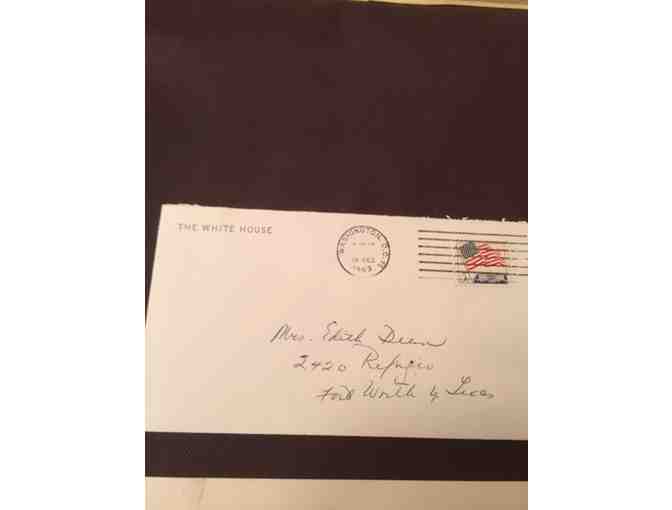 THE WHITE HOUSE
WASHINGTON, D.C.
DEC
1963
Mrs. Edith Deen
2420 Refugio
Fort Worth 6 Texas